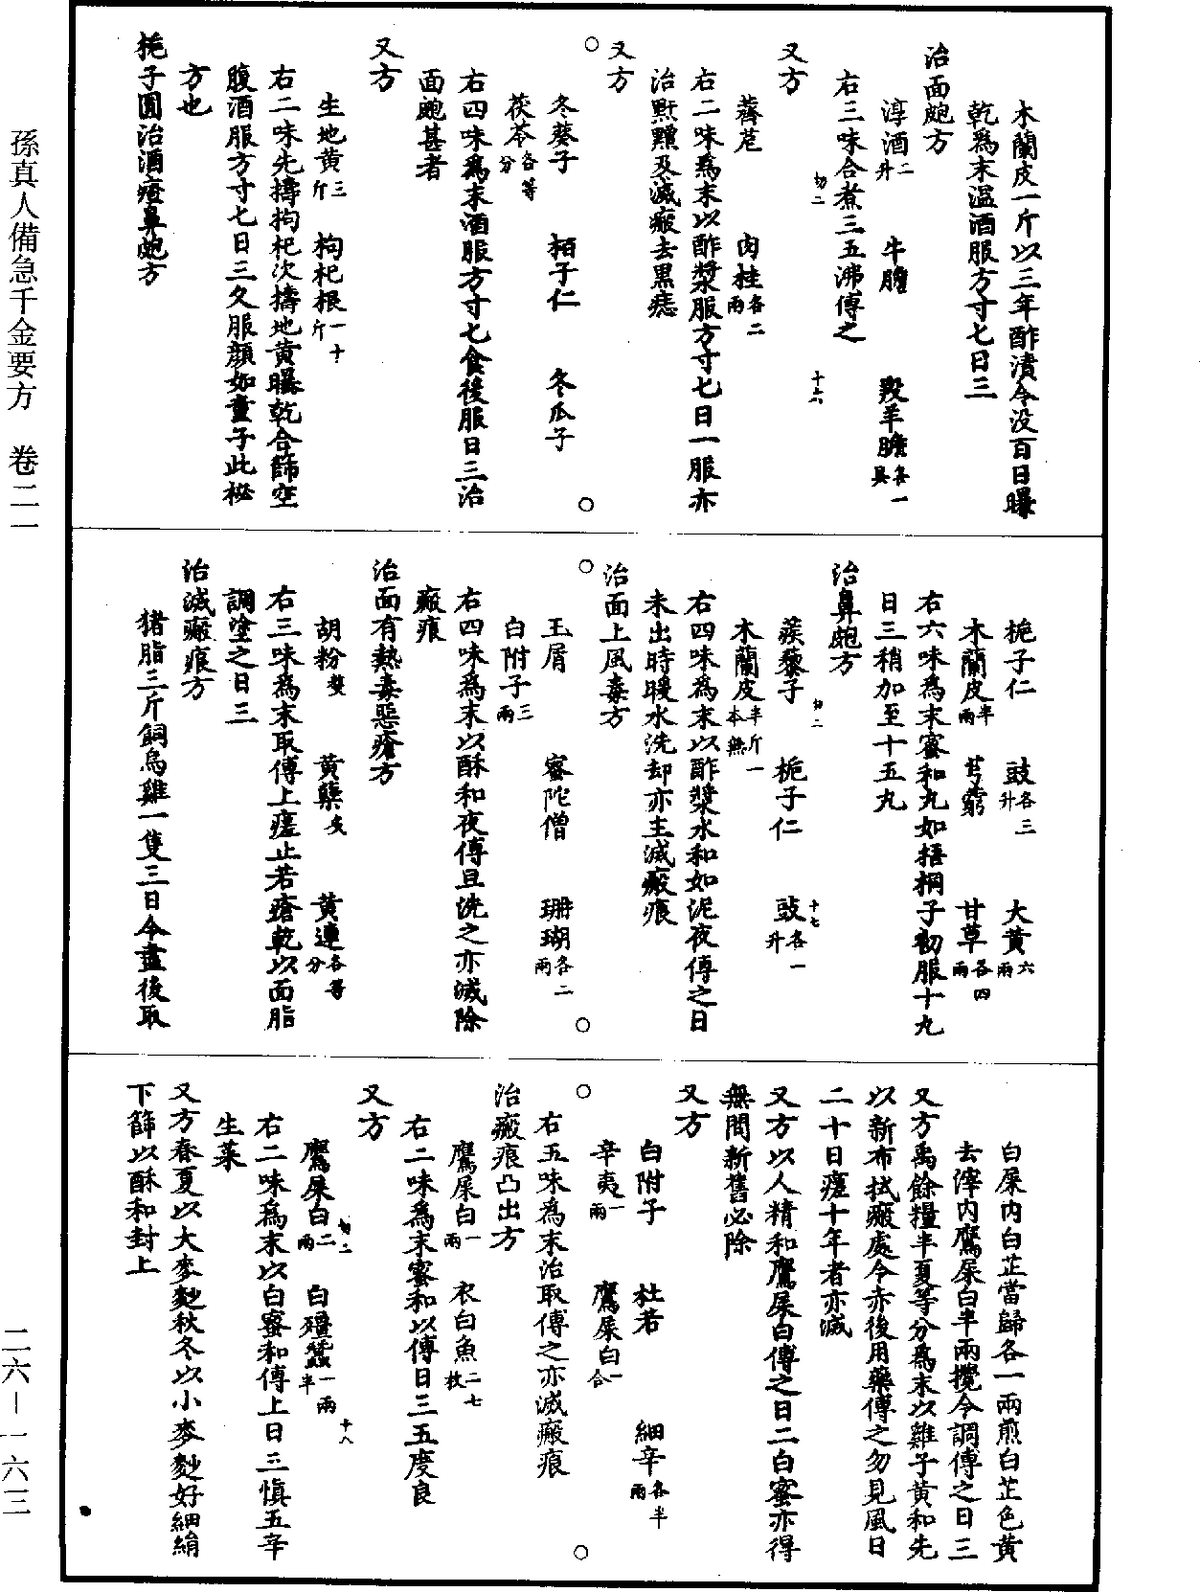 木蘭皮一斤以三年酢漬令没百日曝
乾爲末温酒服方寸匕日三
治面皰方
淳酒二升 牛膽 羖羊膽各一具
右三味合煮三五沸傅之
初二 十六
又方
薺苨 肉桂各二兩
右二味爲末以酢漿服方寸匕日一服亦
治䵟䵳及滅瘢去黒痣
又方
冬葵子 栢子仁 冬瓜子
茯苓各等分
右四味爲末酒服方寸匕食後服日三治
面皰甚者
又方
生地黄三斤 枸杞根一十斤
右二味先擣枸杞次擣地黄曝乾合篩空
腹酒服方寸匕日三久服顔如童子此秘
方也
梔子圓治酒瘡鼻皰方
梔子仁 豉各三升 大黄六兩
木蘭皮半兩 芎藭 甘草各四兩
右六味爲末蜜和丸如梧桐子初服十丸
日三稍加至十五丸
治鼻皰方
蒺藜子 梔子仁 豉各一升
初二 十七
木蘭皮半斤一本無
右四味爲末以酢漿水和如泥夜傅之日
未出時暖水洗却亦主滅瘢痕
治面上風毒方
玉屑 蜜陀僧 珊瑚各二兩
白附子三兩
右四味爲末以酥和夜傅旦洗之亦滅除
瘢痕
治面有熱毒惡瘡方
胡粉熬 黄蘗炙 黄連各等分
右三味爲末取傅上瘥止若瘡乾以面脂
調塗之日三
治滅瘢痕方
猪脂三斤飼烏雞一隻三日令盡後取
白屎内白芷當歸各一兩煎白芷色黄
去滓内鷹屎白半兩攪令調傅之日三
又方禹餘糧半夏等分爲末以雞子黄和先
以新布拭瘢處令赤後用藥傅之勿見風日
二十日瘥十年者亦滅
又方以人精和鷹屎白傅之日二白蜜亦得
無問新舊必除
又方
白附子 杜若 細辛各半兩
辛夷一兩 鷹屎白一合
右五味爲末治取傅之亦滅瘢痕
治瘢痕凸出方
鷹屎白一兩 衣白魚二七枚
右二味爲末蜜和以傅日三五度良
又方
鷹屎白二兩 白殭蠶一兩半
初二 十八
右二味爲末以白蜜和傅上日三慎五辛
生菜
又方春夏以大麥麨秋冬以小麥麨好細絹
下篩以酥和封上
孫真人備急千金要方 卷二一
二六—一六三